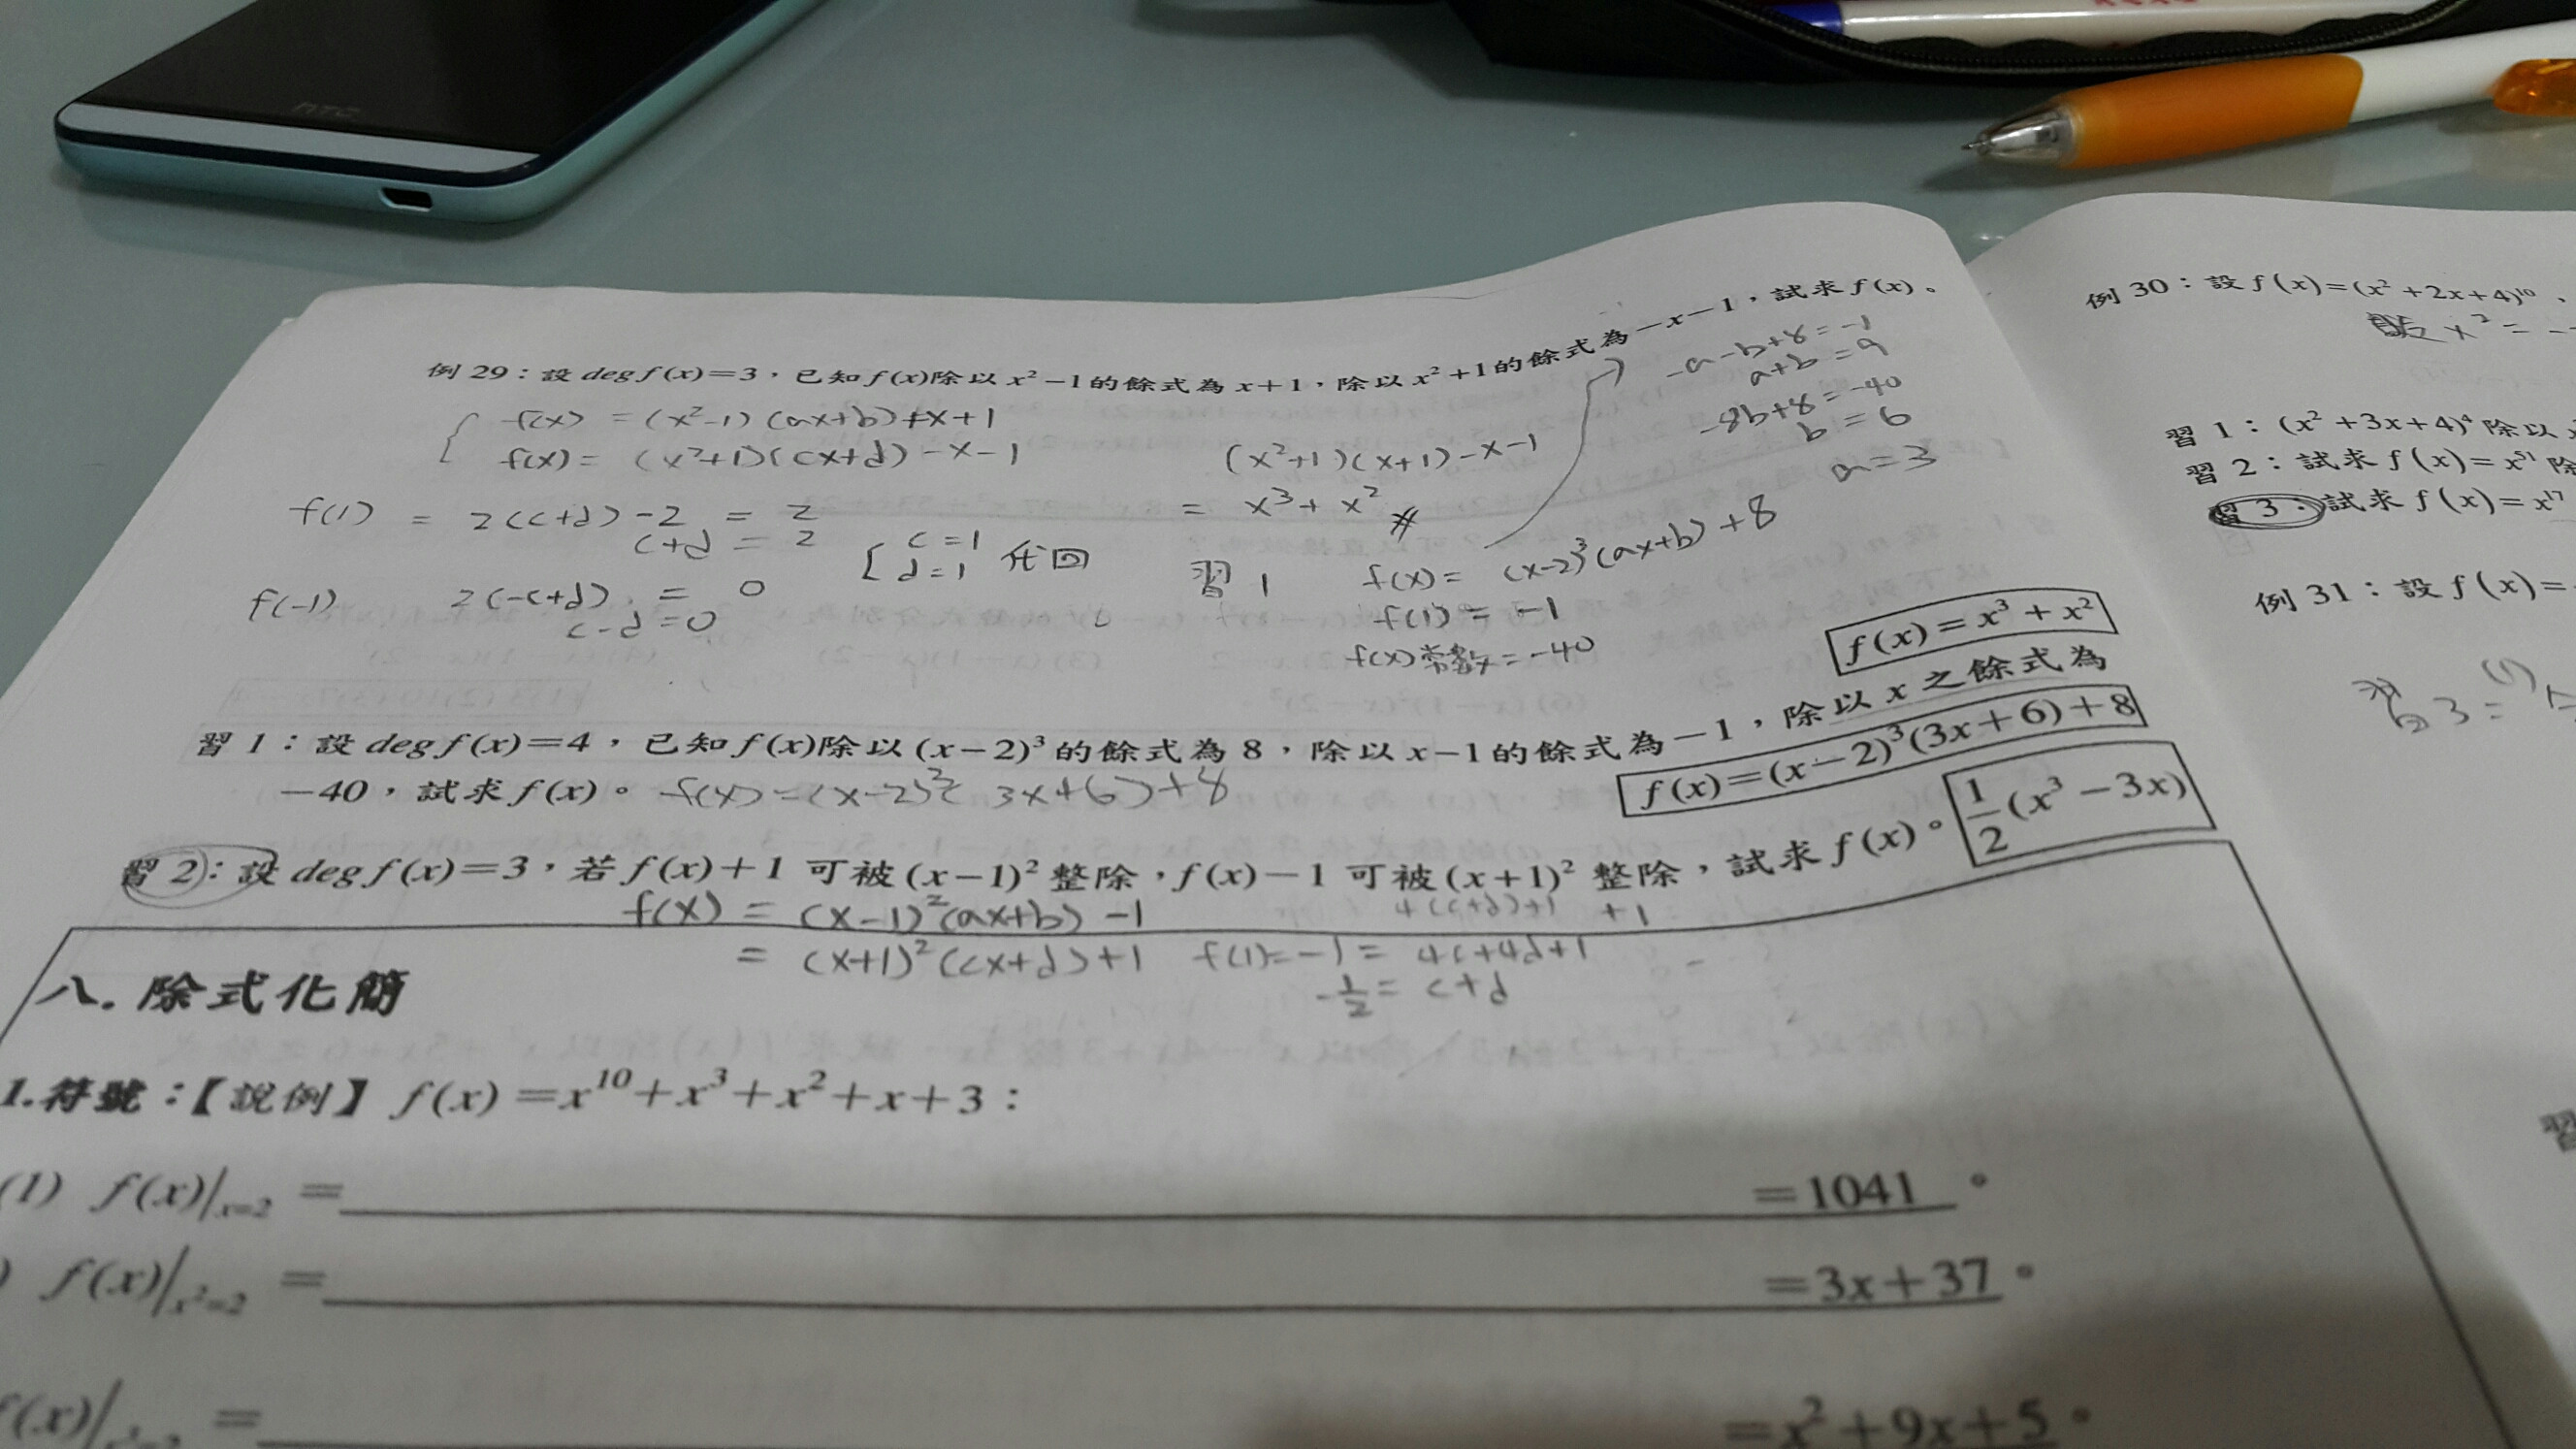 hTC
例 29：設 deg f(x)=3，已知 f(x)除以 x²−1的餘式為 x+1，除以 x²+1的餘式為−x−1，試求 f(x)。
f(x) = (x²-1)(ax+b)+x+1
f(x) = (x²+1)(cx+d)-x-1
f(1) = 2(c+d)-2 = 2
c+d = 2
f(-1) 2(-c+d) = 0
c-d=0
c=1
d=1 代回
(x²+1)(x+1)-x-1
= x³+x² #
-a-b+8=-1
a+b=9
-8b+8=-40
b=6
a=3
習 1 f(x)= (x-2)³(ax+b)+8
f(1) = -1
f(x)常數=-40
f(x)=x³+x²
習 1：設 deg f(x)=4，已知 f(x)除以 (x−2)³ 的餘式為 8，除以 x−1 的餘式為−1，除以 x 之餘式為
−40，試求 f(x)。 f(x)=(x-2)³(3x+6)+8
f(x)=(x−2)³(3x+6)+8
習 2：設 deg f(x)=3，若 f(x)+1 可被 (x−1)² 整除，f(x)−1 可被 (x+1)² 整除，試求 f(x)。 1/2(x³−3x)
f(x) = (x-1)²(ax+b)-1
4(c+d)+1 +1
= (x+1)²(cx+d)+1 f(1)=-1= 4c+4d+1
-1/2 = c+d
八. 除式化簡
1.符號：【說例】f(x)=x¹⁰+x³+x²+x+3：
(1) f(x)|x=2 = =1041 。
) f(x)|x²=2 = =3x+37 。
f(x)| = =x²+9x+5 。
例 30：設 f(x)=(x²+2x+4)¹⁰、
x² = -
習 1：(x²+3x+4)⁴ 除以
習 2：試求 f(x)=x⁵¹ 除
習 3：試求 f(x)=x¹⁷
例 31：設 f(x)=
習 3 = (1)
習